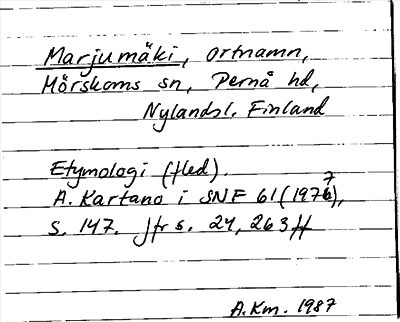 Marjumäki, ortnamn,
Mörskoms sn, Pernå hd,
Nylandsl. Finland
Etymologi (fled).
A. Kartano i SNF 61 (1977),
s. 147. Jfr s. 24, 263 ff
A.Km. 1987